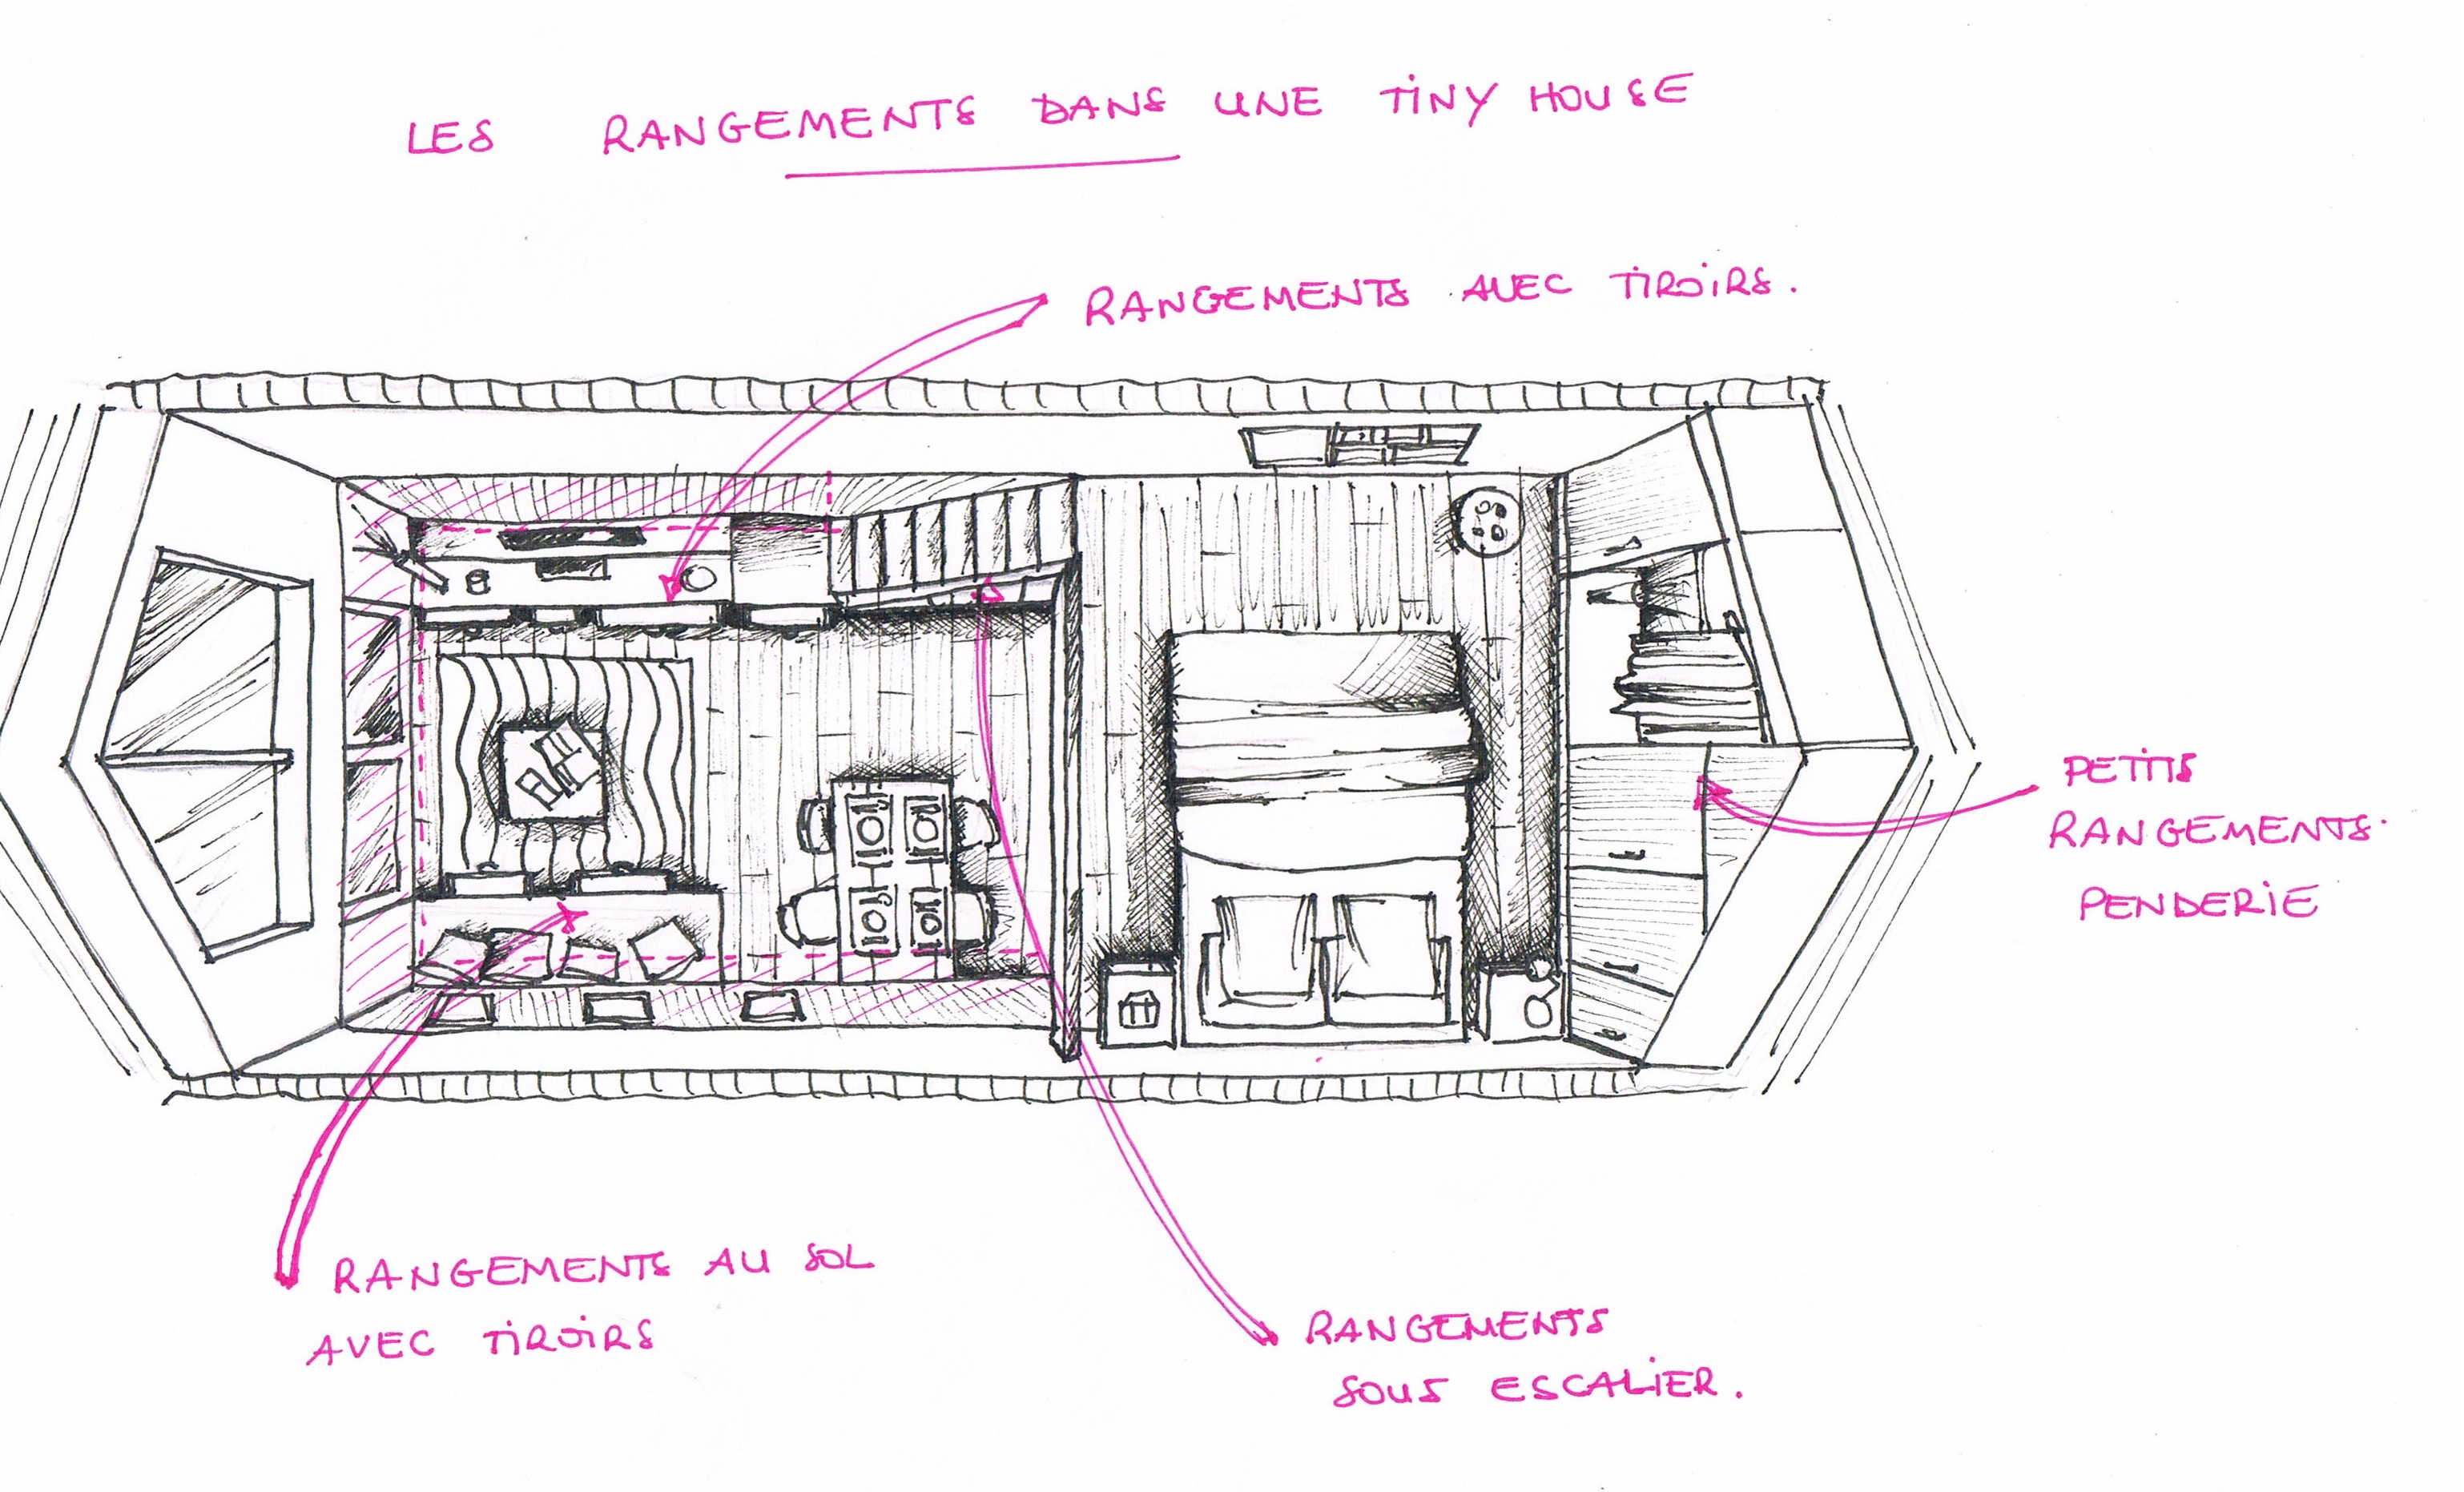 LES RANGEMENTS DANS UNE TINY HOUSE
RANGEMENTS AVEC TIROIRS.
PETITS
RANGEMENTS.
PENDERIE
RANGEMENTS AU SOL
AVEC TIROIRS
RANGEMENTS
SOUS ESCALIER.